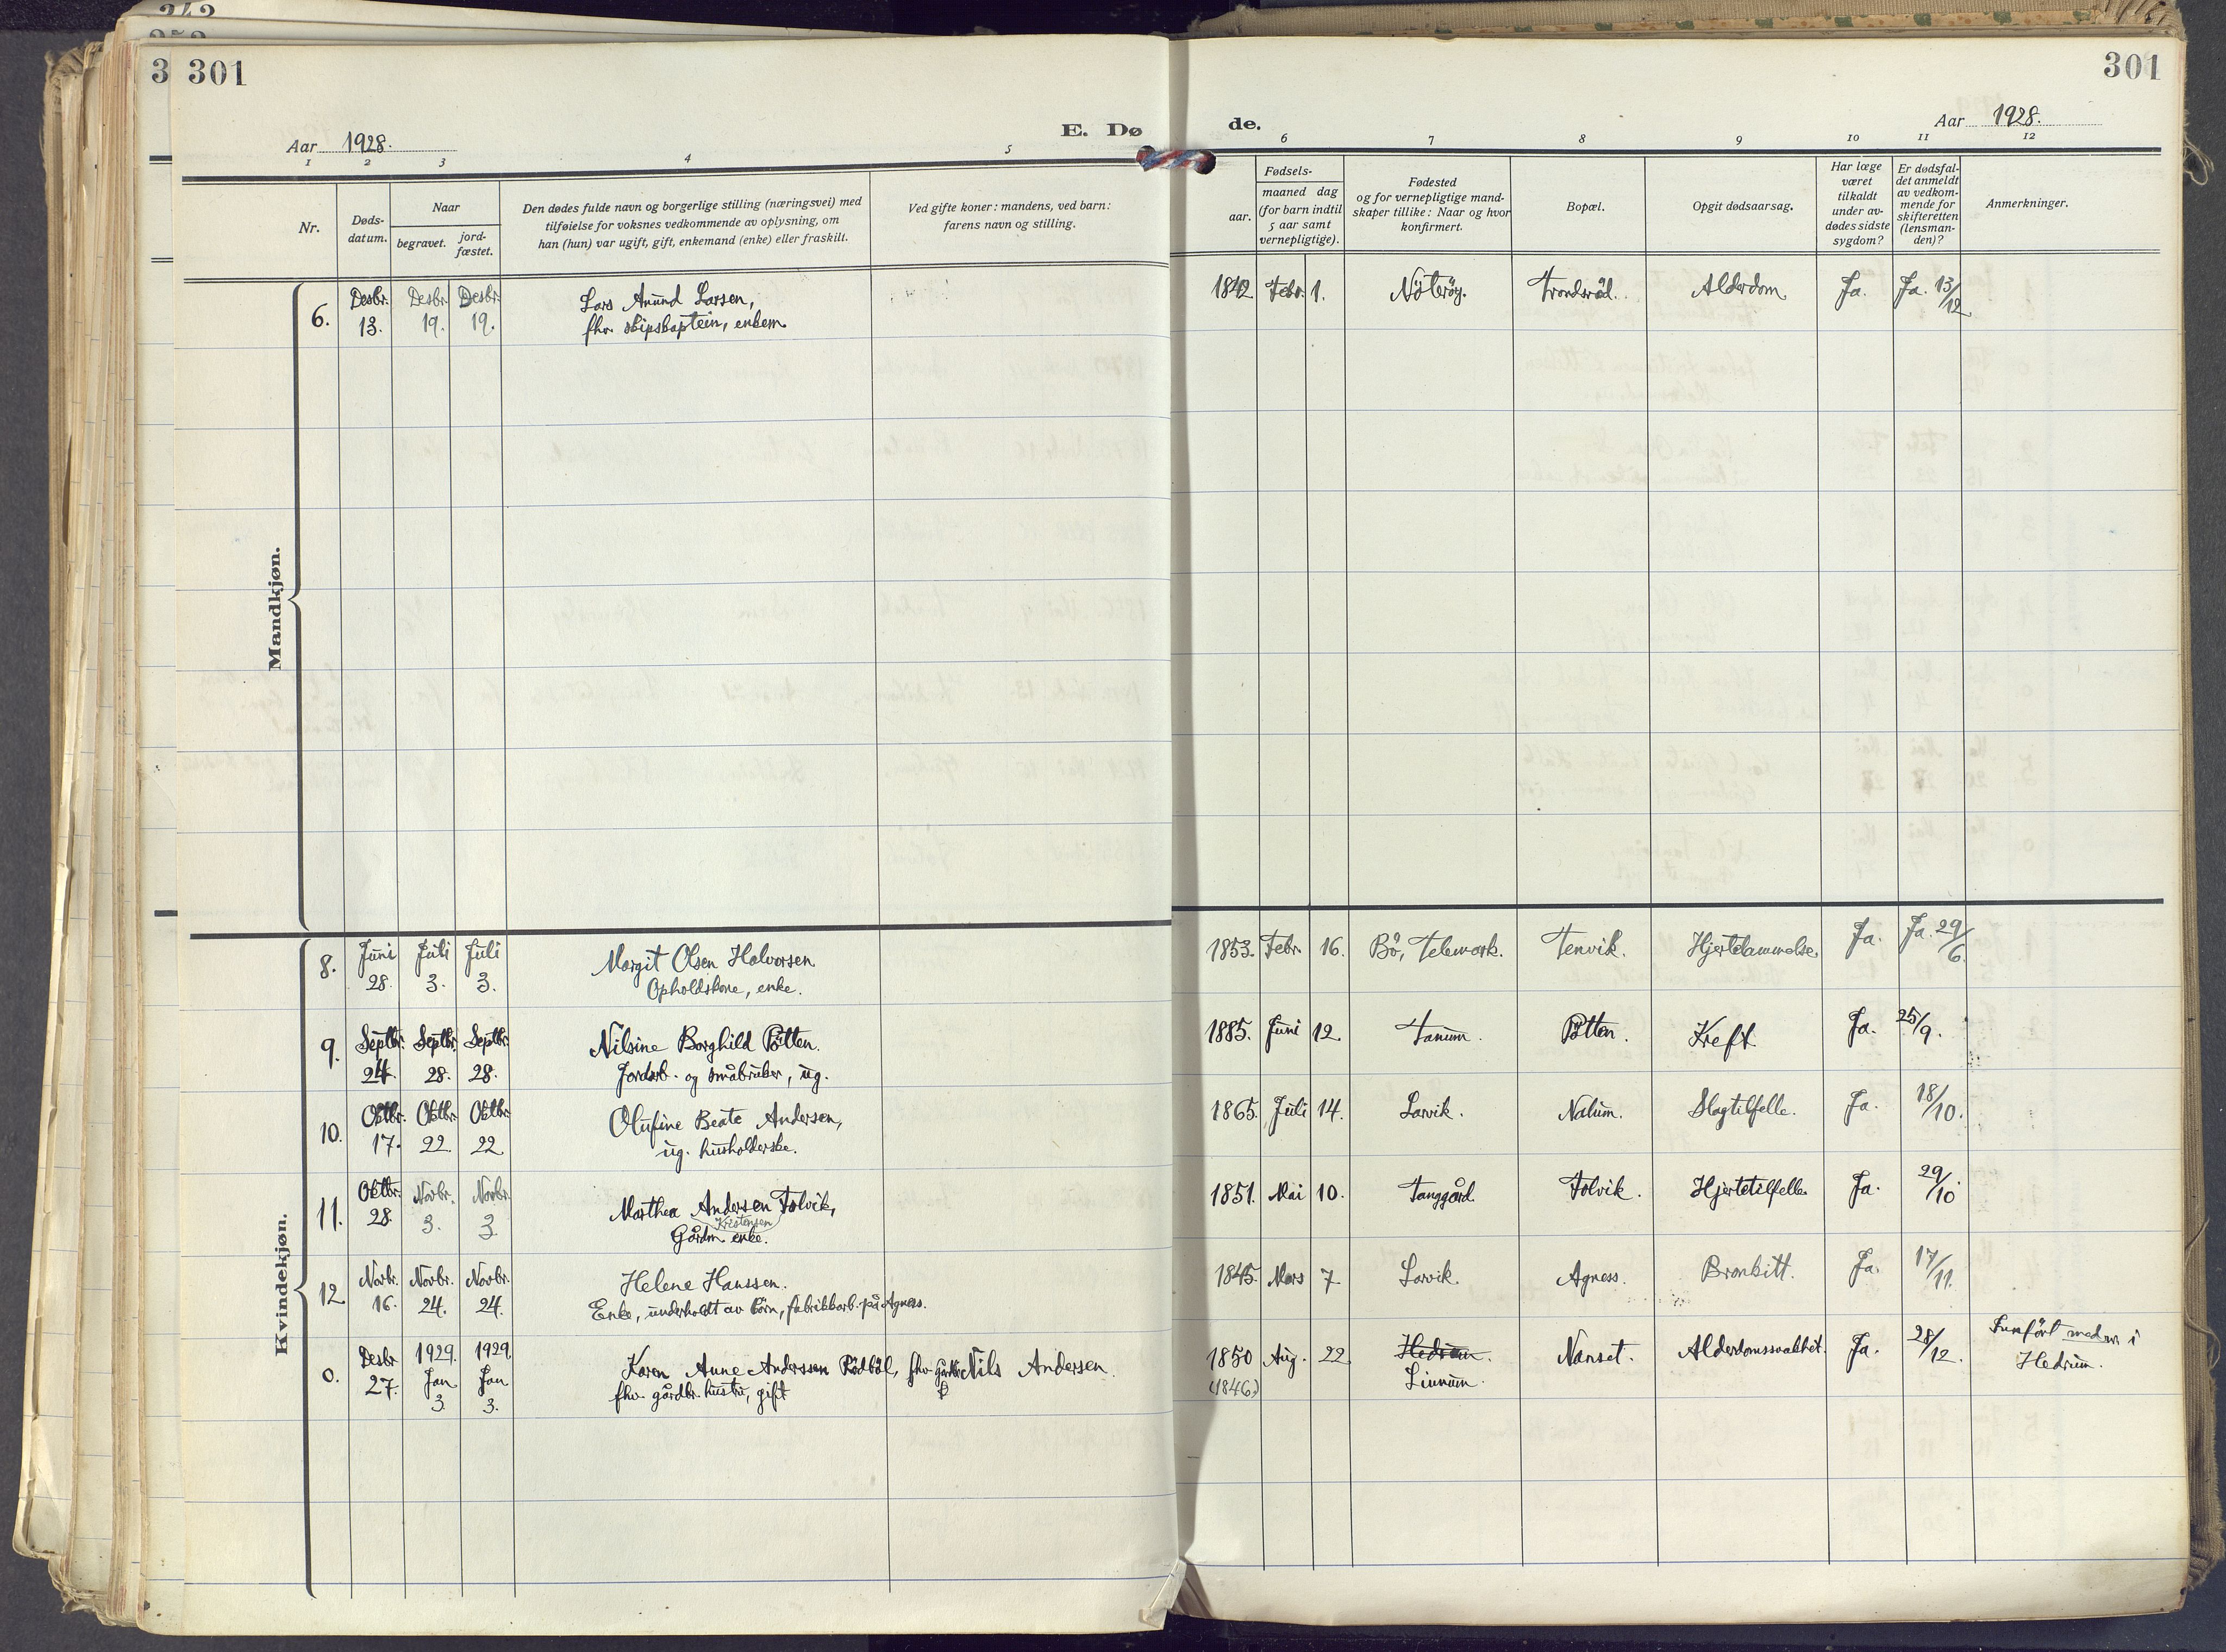 342
3 301
301
E. Døde.
Aar 1928.
Aar 1928.
1 2 3 4 5 6 7 8 9 10 11 12
Nr.
Døds-
datum.
Naar
begravet.
jord-
fæstet.
Den dødes fulde navn og borgerlige stilling (næringsvei) med
tilføielse for voksnes vedkommende av oplysning, om
han (hun) var ugift, gift, enkemand (enke) eller fraskilt.
Ved gifte koner: mandens, ved barn:
farens navn og stilling.
Fødsels-
aar. maaned dag
(for barn indtil
5 aar samt
vernepligtige).
Fødested
og for vernepligtige mand-
skaper tillike: Naar og hvor
konfirmert.
Bopæl.
Opgit dødsaarsag.
Har læge
været
tilkaldt
under av-
dødes sidste
sygdom?
Er dødsfal-
det anmeldt
av vedkom-
mende for
skifteretten
(lensman-
den)?
Anmerkninger.
Mandkjøn.
6. Desbr. 13. Desbr. 19. Desbr. 19. Lars Anund Larsen, 1842 Febr. 1. Nöterøy. Trondsröd. Alderdom. Ja. Ja. 13/12
fhv. skipskaptein, enkem.
Kvindekjøn.
8. Juni 28. Juli 3. Juli 3. Margit Olsen Halvorsen 1853. Febr. 16. Bö, Telemark. Tenvik. Hjertelammelse. Ja. Ja. 29/6.
Opholdskone, enke.
9. Septbr. 24. Septbr. 28. Septbr. 28. Nilsine Borghild Pötten. 1885. Juni 12. Tanum. Pötten. Kreft. Ja. 25/9.
Jordarb. og småbruker, ug.
10. Oktbr. 17. Oktbr. 22. Oktbr. 22. Olufine Beate Andersen, 1865. Juli 14. Larvik. Nalum. Slagtilfelle. Ja. 18/10.
ug. husholderske.
11. Oktbr. 28. Novbr. 3. Novbr. 3. Marthea Andersen Folvik, 1851. Mai 10. Tanggård Folvik. Hjertetilfelle. Ja. 29/10
Kristensen
Gårdm. enke.
12. Novbr. 16. Novbr. 24. Novbr. 24. Helene Hanssen. 1845. Mars 7. Larvik. Agness. Bronkitt. Ja. 17/11.
Enke, underholdt av börn, fabrikkarb. på Agness.
0. Desbr. 27. 1929. Jan 3. 1929. Jan 3. Karen Anne Anderssen Rödböl, fhv. gårdbr. Nils Andersen. 1850 Aug. 22. Hedrum. Nanset. Alderdomssvakhet. Ja. 28/12. Innfört med nr i
fhv. gårdbr. hustru, gift (1846.) Linnum. Hedrum.